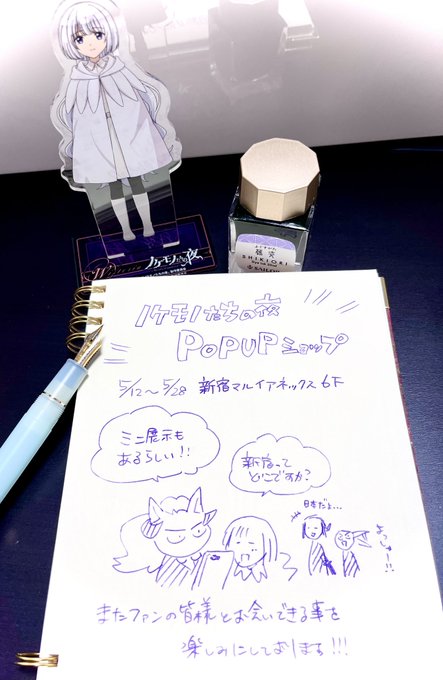 ノケモノたちの夜
SHIKIORI
SAILOR
ノケモノたちの夜
POPUPショップ
5/12〜5/28 新宿マルイアネックス 6F
ミニ展示も
あるらしい!!
新宿って
どこですか?
日本だよ…
またファンの皆様とお会いできる事を
楽しみにしております!!!